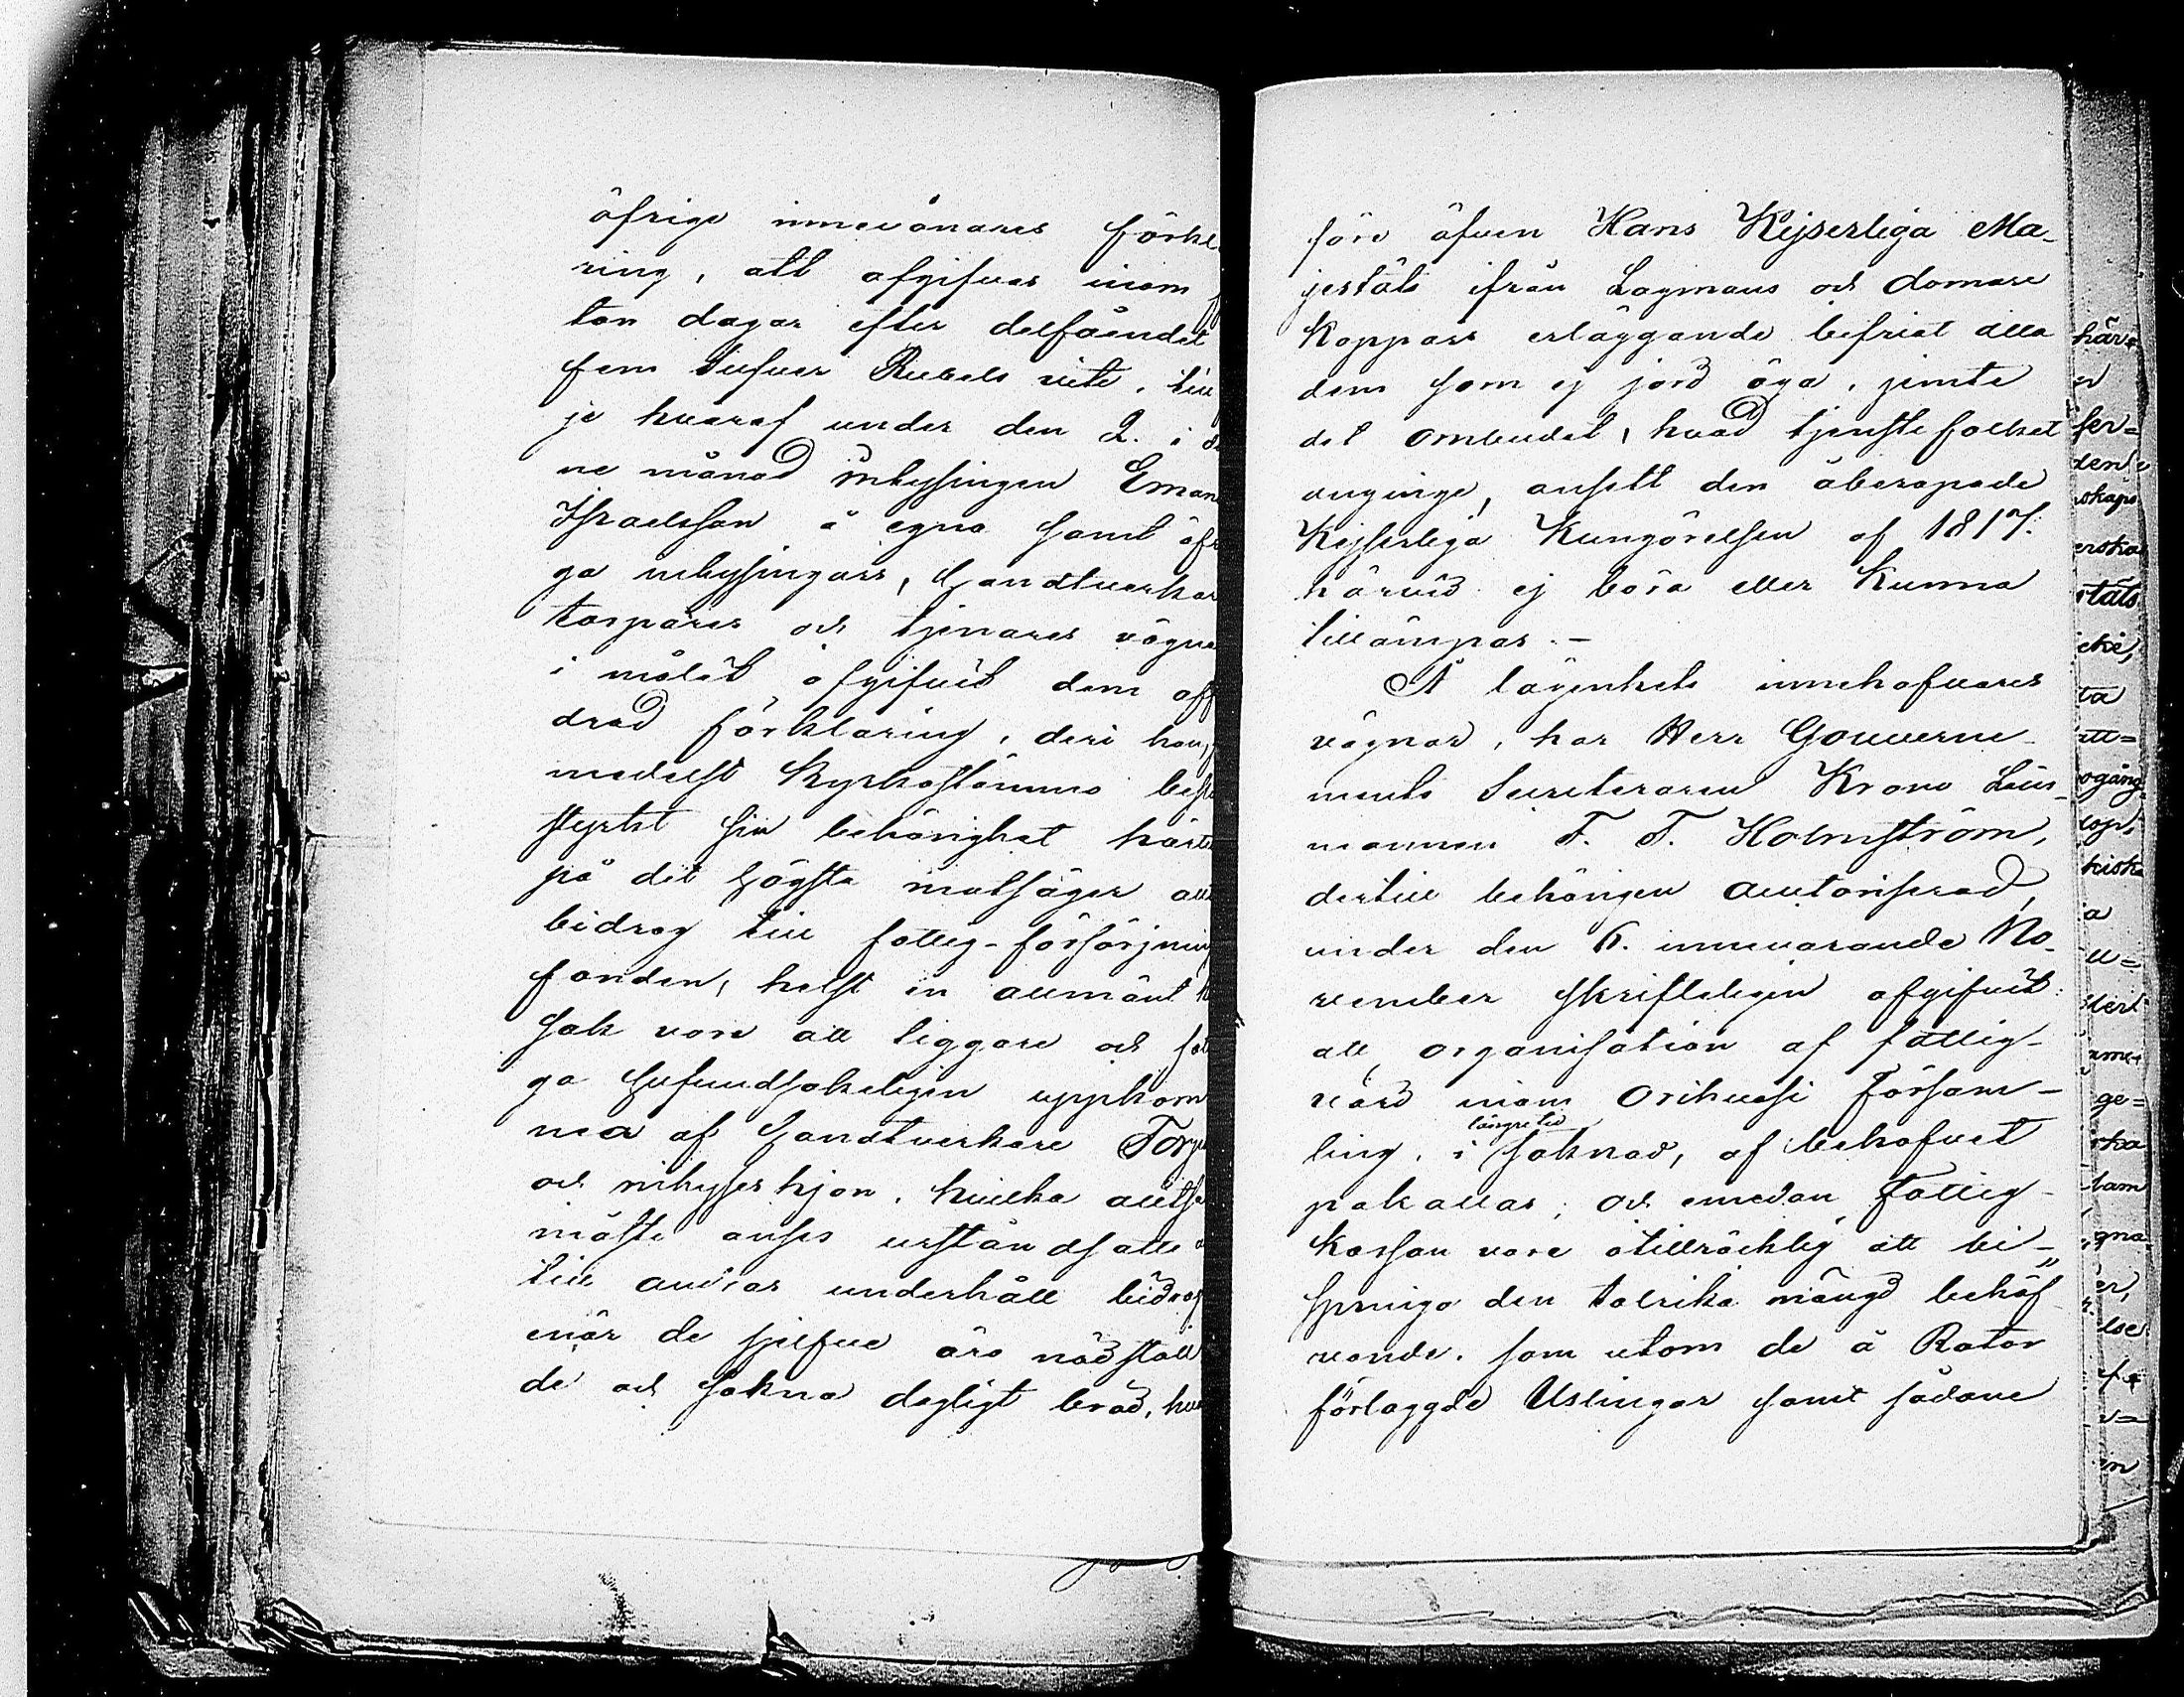 öfrige innevånares förkla
ring, att afgifvas inom
ton dagar efter delfåendet
fem silfver Rubels vite, till
je hvaraf under den 2. i de
ne månad inhysingen Eman
Israelsson å egna samt öfr
ga inhysingars, handtverkar
torpares och tjenares vägna
i målet afgifvit dem aff
drad förklaring, deri han,
medelst Kyrkostämmo
styrkt sin behörighet härti
på det högsta motsäger all
bidrag till fattig-försörjning
fonden, helst en allmänt
sak vore att tiggare och fat
ga hufvudsakeligen uppkom
ma af handtverkare Torpa
och inhyses hjon, hvilka alltså
måste anses urståndsatte
till andras underhåll bidrag
enär de sjelfve äro nödställ
de och sakna dagligt bröd, hva
före äfven Hans Kejserliga Ma-
jestäts ifrån Lagmans och domare
Kappars erläggande befriat alla
dem som ej jord äga, jemte
det ombudet, hvad tjenstefolket
anginge, ansett den åberopade
Kejserliga Kungörelsen af 1817.
härvid ej böra eller Kunna
tillämpas.-
A lägenhets innehafvares
vägnar, har Herr Gouverne-
ments Secreteraren Krono Läns-
mannen F. F. Holmström,
dertill behörigen auctoriserad,
under den 6. innevarande No-
vember skrifteligen afgifvit:
att organisation af fattig-
vård inom Orihvesi Försam-
längre tid
ling, i saknad, af behofvet
påkallas; och emedan Fattig-
Kassan vore otillräcklig att bi-
springa den talrika mängd behöf
vande, som utom de å Rotor
förlaggde Uslingar samt sådane
här
ser=
dende
skaps
erska
täts
ta
att=
gång
ge=
ska
gna
er,
lse
en